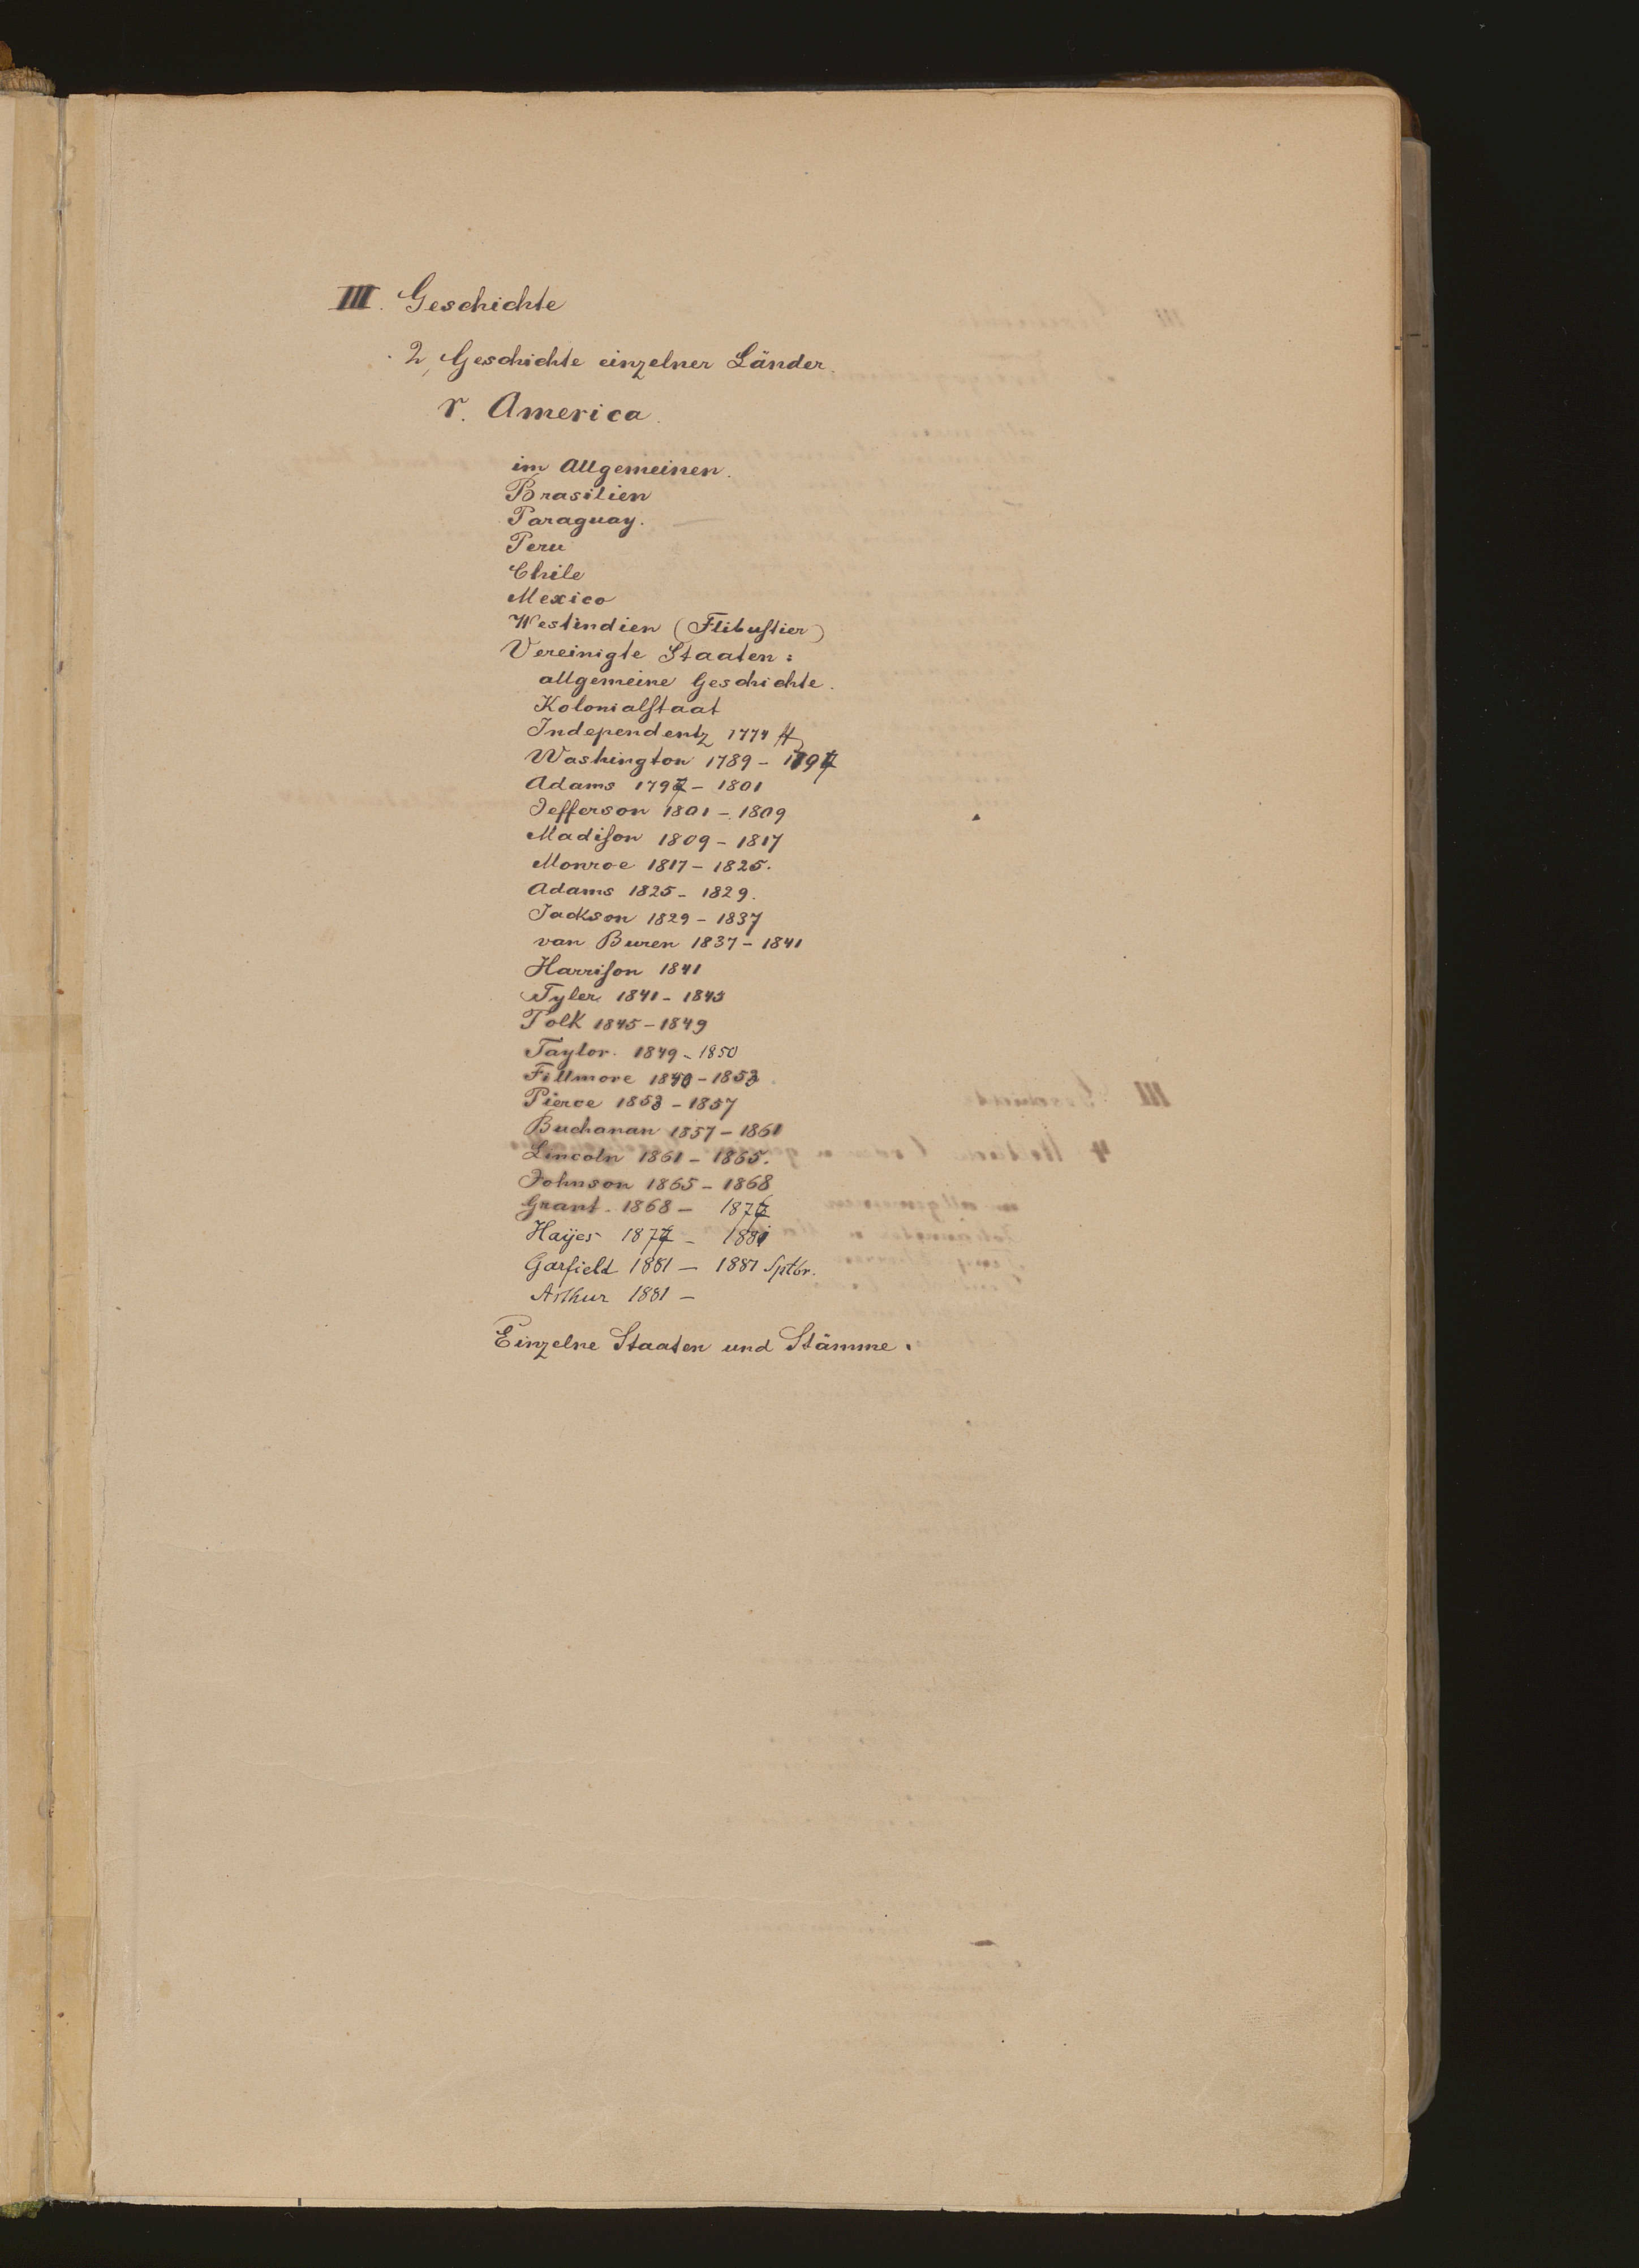 III. Geschichte
2, Geschichte einzelner Länder.
r. America.
im Allgemeinen.
Brasilien
Paraguay.
Peru
Chile
Mexico
Westindien (Flibuſtier)
Vereinigte Staaten:
allgemeine Geschichte.
Kolonialſtaat
Independentz 1774 ff
Washington 1789 - 1797
Adams 1797 - 1801
Jefferson 1801 - 1809
Madiſon 1809 - 1817
Monroe 1817 - 1825.
Adams 1825 - 1829.
Jackson 1829 - 1837
van Buren 1837 - 1841
Harriſon 1841
Tyler 1841 - 1845
Polk 1845 - 1849
Taylor. 1849 - 1850
Fillmore 1850 - 1853
Pierce 1853 - 1857
Buchanan 1857 - 1861
Lincoln 1861 - 1865.
Johnson 1865 - 1868
Grant. 1868 - 1877
Hayes 1877 - 1881
Garfield 1881 - 1881 Sptbr.
Arthur 1881 -
Einzelne Staaten und Stämme.